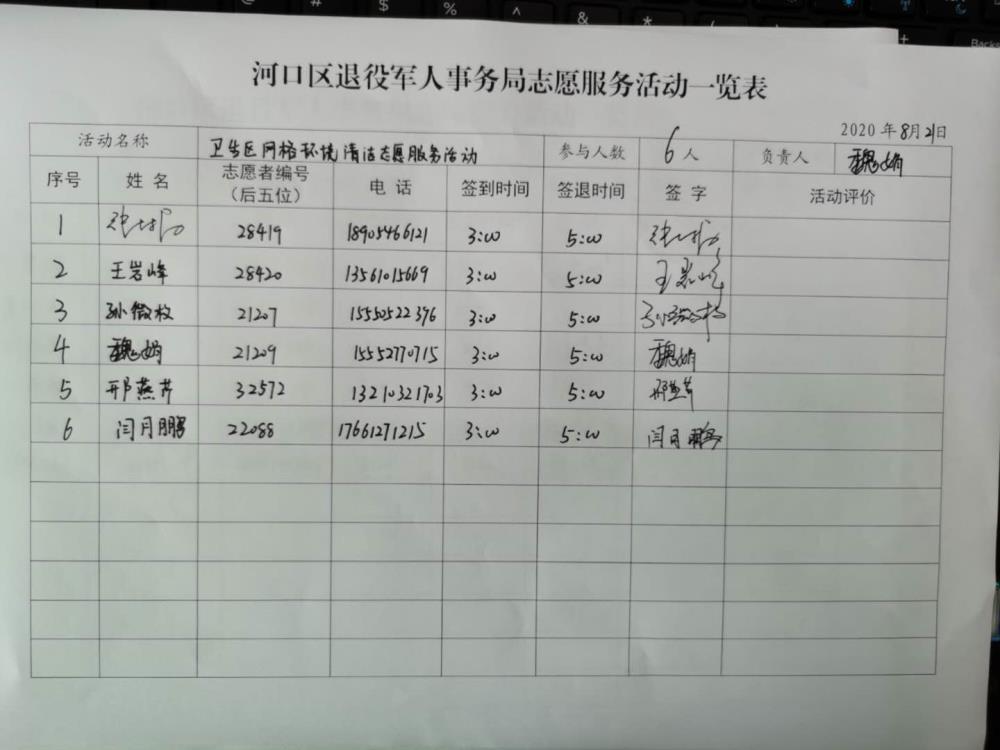 河口区退役军人事务局志愿服务活动一览表
2020年8月21日
活动名称 卫生区网格环境清洁志愿服务活动 参与人数 6人 负责人 魏娟
序号 姓名 志愿者编号（后五位） 电话 签到时间 签退时间 签字 活动评价
1 28419 18905466121 3:00 5:00
2 王岩峰 28420 13561015669 3:00 5:00 王岩峰
3 孙微枚 21207 15550522396 3:00 5:00
4 魏娟 21209 15552770715 3:00 5:00 魏娟
5 邢燕芹 32572 13210321703 3:00 5:00 邢燕芹
6 闫月鹏 22088 17661271215 3:00 5:00 闫月鹏